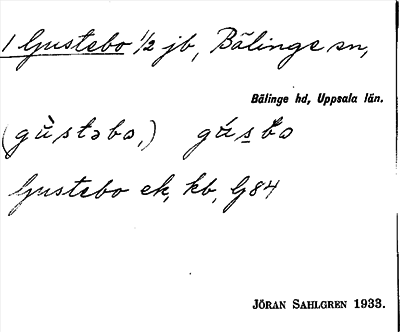 1 Gustebo 1/2 jb, Bälinge sn,
Bälinge hd, Uppsala län.
(gùstəbo,) gúsbo
Gustebo ek, kb, G84
JÖRAN SAHLGREN 1933.